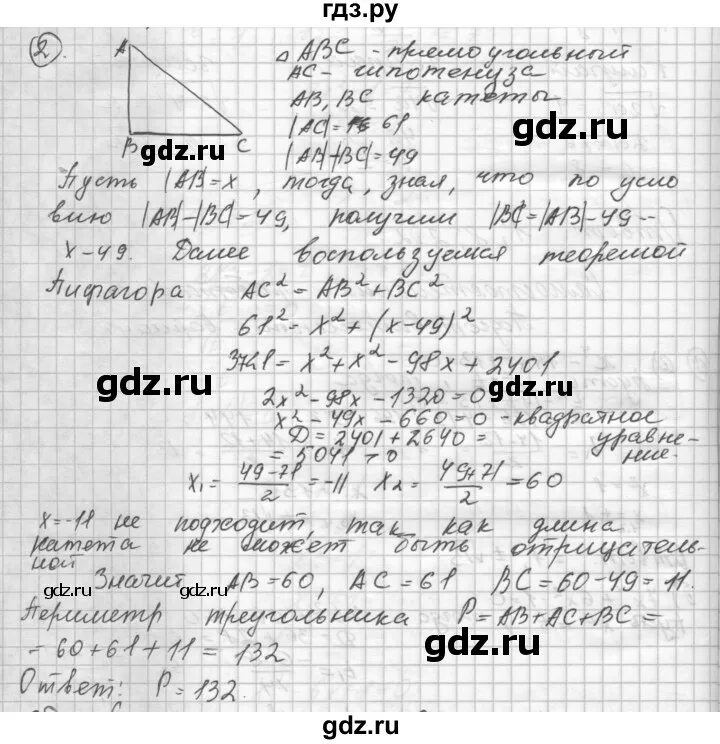 гдз.ру
2.
A
B
C
△ ABC - прямоугольный
AC - гипотенуза
AB, BC катеты
|AC| = 61
|AB|-|BC|=49
Пусть |AB|=x, тогда, зная, что по усло
вию |AB|-|BC|=49, получим |BC|=|AB|-49=
x-49. Далее воспользуемся теоремой
Пифагора AC²=AB²+BC²
61²=x²+(x-49)²
3721=x²+x²-98x+2401
2x²-98x-1320=0
x²-49x-660=0 -квадратное
уравне-
ние.
D=2401+2640=
=5041>0
x₁=(49-71)/2=-11 x₂=(49+71)/2=60
x=-11 не подходит, так как длина
катета не может быть отрицатель-
ной
Значит AB=60, AC=61 BC=60-49=11.
Периметр треугольника P=AB+AC+BC=
=60+61+11=132
Ответ: P=132.
gdz.ru
gdz.ru
gdz.ru
gdz.ru
gdz.ru
gdz.ru
gdz.ru
gdz.ru
gdz.ru
gdz.ru
gdz.ru